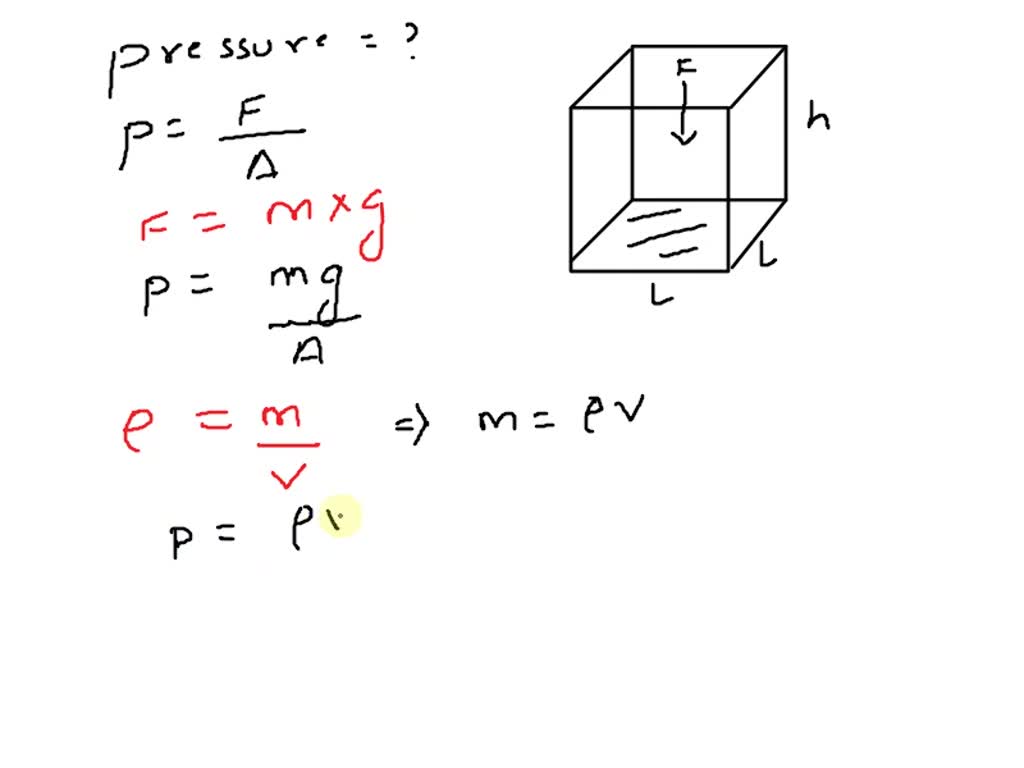 pressure = ?
P = F / A
F = m × g
P = mg / A
ρ = m / V ⇒ m = ρV
P = ρ
F
h
L
L